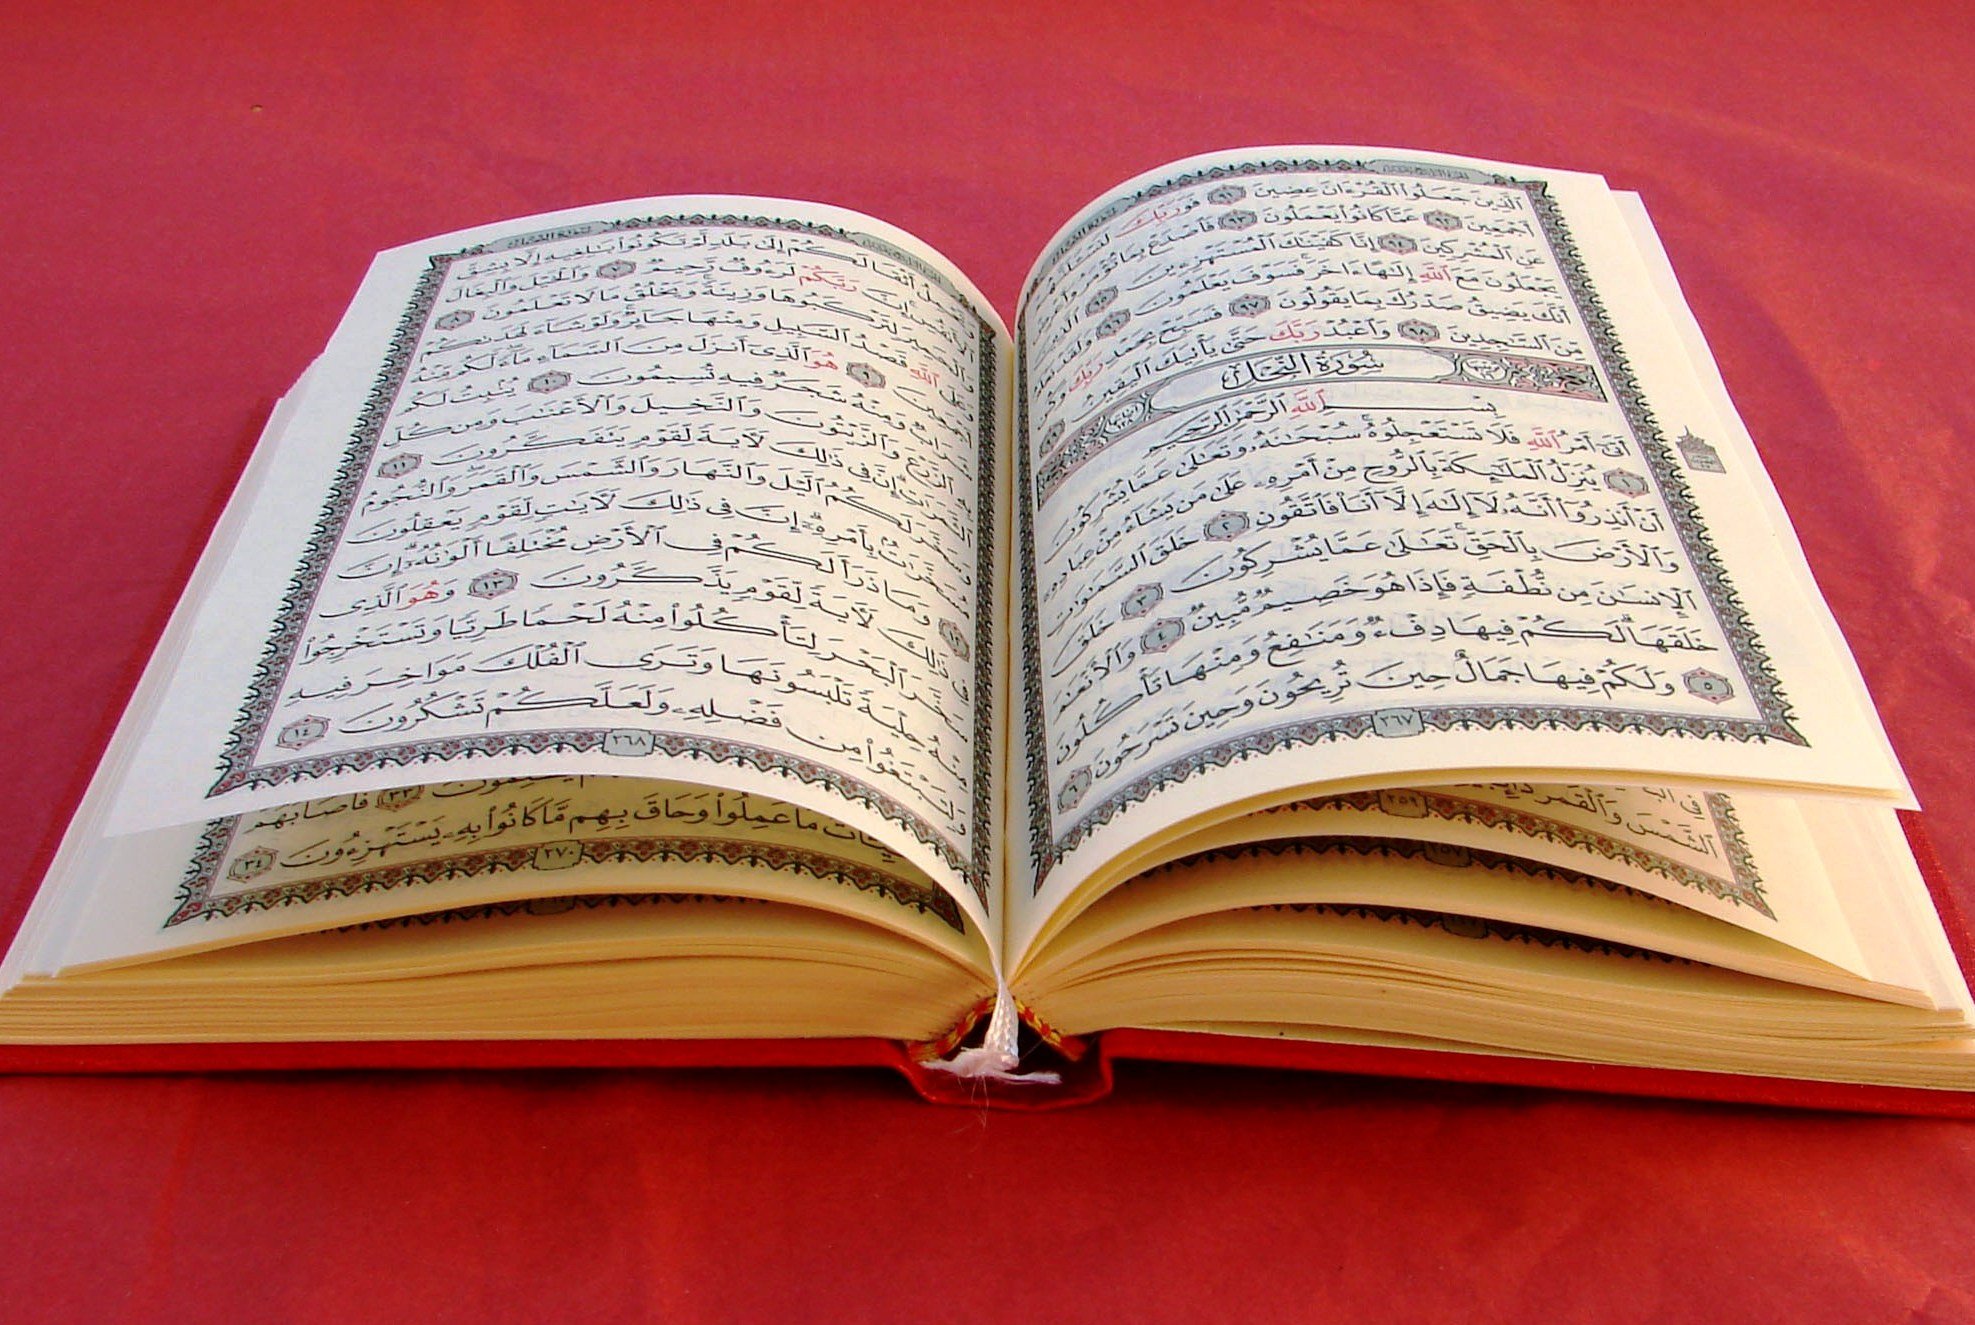 ٱلَّذِينَ جَعَلُوا۟ ٱلْقُرْءَانَ عِضِينَ ٩١ فَوَرَبِّكَ
أَجْمَعِينَ ٩٢ عَمَّا كَانُوا۟ يَعْمَلُونَ ٩٣ فَٱصْدَعْ بِمَا تُؤْمَرُ وَأَعْرِضْ
عَنِ ٱلْمُشْرِكِينَ ٩٤ إِنَّا كَفَيْنَـٰكَ ٱلْمُسْتَهْزِءِينَ ٩٥ ٱلَّذِينَ
يَجْعَلُونَ مَعَ ٱللَّهِ إِلَـٰهًا ءَاخَرَ فَسَوْفَ يَعْلَمُونَ ٩٦ وَلَقَدْ نَعْلَمُ
أَنَّكَ يَضِيقُ صَدْرُكَ بِمَا يَقُولُونَ ٩٧ فَسَبِّحْ بِحَمْدِ رَبِّكَ وَكُن
مِّنَ ٱلسَّـٰجِدِينَ ٩٨ وَٱعْبُدْ رَبَّكَ حَتَّىٰ يَأْتِيَكَ ٱلْيَقِينُ ٩٩
سُورَةُ النَّحْلِ
بِسْمِ ٱللَّهِ ٱلرَّحْمَـٰنِ ٱلرَّحِيمِ
أَتَىٰٓ أَمْرُ ٱللَّهِ فَلَا تَسْتَعْجِلُوهُ سُبْحَـٰنَهُۥ وَتَعَـٰلَىٰ عَمَّا يُشْرِكُونَ
١ يُنَزِّلُ ٱلْمَلَـٰٓئِكَةَ بِٱلرُّوحِ مِنْ أَمْرِهِۦ عَلَىٰ مَن يَشَآءُ مِنْ عِبَادِهِۦٓ
أَنْ أَنذِرُوٓا۟ أَنَّهُۥ لَآ إِلَـٰهَ إِلَّآ أَنَا۠ فَٱتَّقُونِ ٢ خَلَقَ ٱلسَّمَـٰوَٰتِ
وَٱلْأَرْضَ بِٱلْحَقِّ تَعَـٰلَىٰ عَمَّا يُشْرِكُونَ ٣ خَلَقَ
ٱلْإِنسَـٰنَ مِن نُّطْفَةٍ فَإِذَا هُوَ خَصِيمٌ مُّبِينٌ ٤ وَٱلْأَنْعَـٰمَ
خَلَقَهَا لَكُمْ فِيهَا دِفْءٌ وَمَنَـٰفِعُ وَمِنْهَا تَأْكُلُونَ
٥ وَلَكُمْ فِيهَا جَمَالٌ حِينَ تُرِيحُونَ وَحِينَ تَسْرَحُونَ ٦
٢٦٧
وَتَحْمِلُ أَثْقَالَكُمْ إِلَىٰ بَلَدٍ لَّمْ تَكُونُوا۟ بَـٰلِغِيهِ إِلَّا بِشِقِّ
ٱلْأَنفُسِ إِنَّ رَبَّكُمْ لَرَءُوفٌ رَّحِيمٌ ٧ وَٱلْخَيْلَ وَٱلْبِغَالَ
وَٱلْحَمِيرَ لِتَرْكَبُوهَا وَزِينَةً وَيَخْلُقُ مَا لَا تَعْلَمُونَ ٨
وَعَلَى ٱللَّهِ قَصْدُ ٱلسَّبِيلِ وَمِنْهَا جَآئِرٌ وَلَوْ شَآءَ لَهَدَىٰكُمْ
أَجْمَعِينَ ٩ هُوَ ٱلَّذِىٓ أَنزَلَ مِنَ ٱلسَّمَآءِ مَآءً لَّكُم مِّنْهُ
شَرَابٌ وَمِنْهُ شَجَرٌ فِيهِ تُسِيمُونَ ١٠ يُنۢبِتُ لَكُم
بِهِ ٱلزَّرْعَ وَٱلزَّيْتُونَ وَٱلنَّخِيلَ وَٱلْأَعْنَـٰبَ وَمِن كُلِّ
ٱلثَّمَرَٰتِ إِنَّ فِى ذَٰلِكَ لَـَٔايَةً لِّقَوْمٍ يَتَفَكَّرُونَ ١١
وَسَخَّرَ لَكُمُ ٱلَّيْلَ وَٱلنَّهَارَ وَٱلشَّمْسَ وَٱلْقَمَرَ وَٱلنُّجُومُ
مُسَخَّرَٰتٌۢ بِأَمْرِهِۦٓ إِنَّ فِى ذَٰلِكَ لَـَٔايَـٰتٍ لِّقَوْمٍ يَعْقِلُونَ
١٢ وَمَا ذَرَأَ لَكُمْ فِى ٱلْأَرْضِ مُخْتَلِفًا أَلْوَٰنُهُۥٓ إِنَّ
فِى ذَٰلِكَ لَـَٔايَةً لِّقَوْمٍ يَذَّكَّرُونَ ١٣ وَهُوَ ٱلَّذِى
سَخَّرَ ٱلْبَحْرَ لِتَأْكُلُوا۟ مِنْهُ لَحْمًا طَرِيًّا وَتَسْتَخْرِجُوا۟
مِنْهُ حِلْيَةً تَلْبَسُونَهَا وَتَرَى ٱلْفُلْكَ مَوَاخِرَ فِيهِ
وَلِتَبْتَغُوا۟ مِن فَضْلِهِۦ وَلَعَلَّكُمْ تَشْكُرُونَ ١٤
٢٦٨
٣٣ فَأَصَابَهُمْ
مَا عَمِلُوا۟ وَحَاقَ بِهِم مَّا كَانُوا۟ بِهِۦ يَسْتَهْزِءُونَ ٣٤
٢٧٠
ٱلشَّمْسَ وَٱلْقَمَرَ